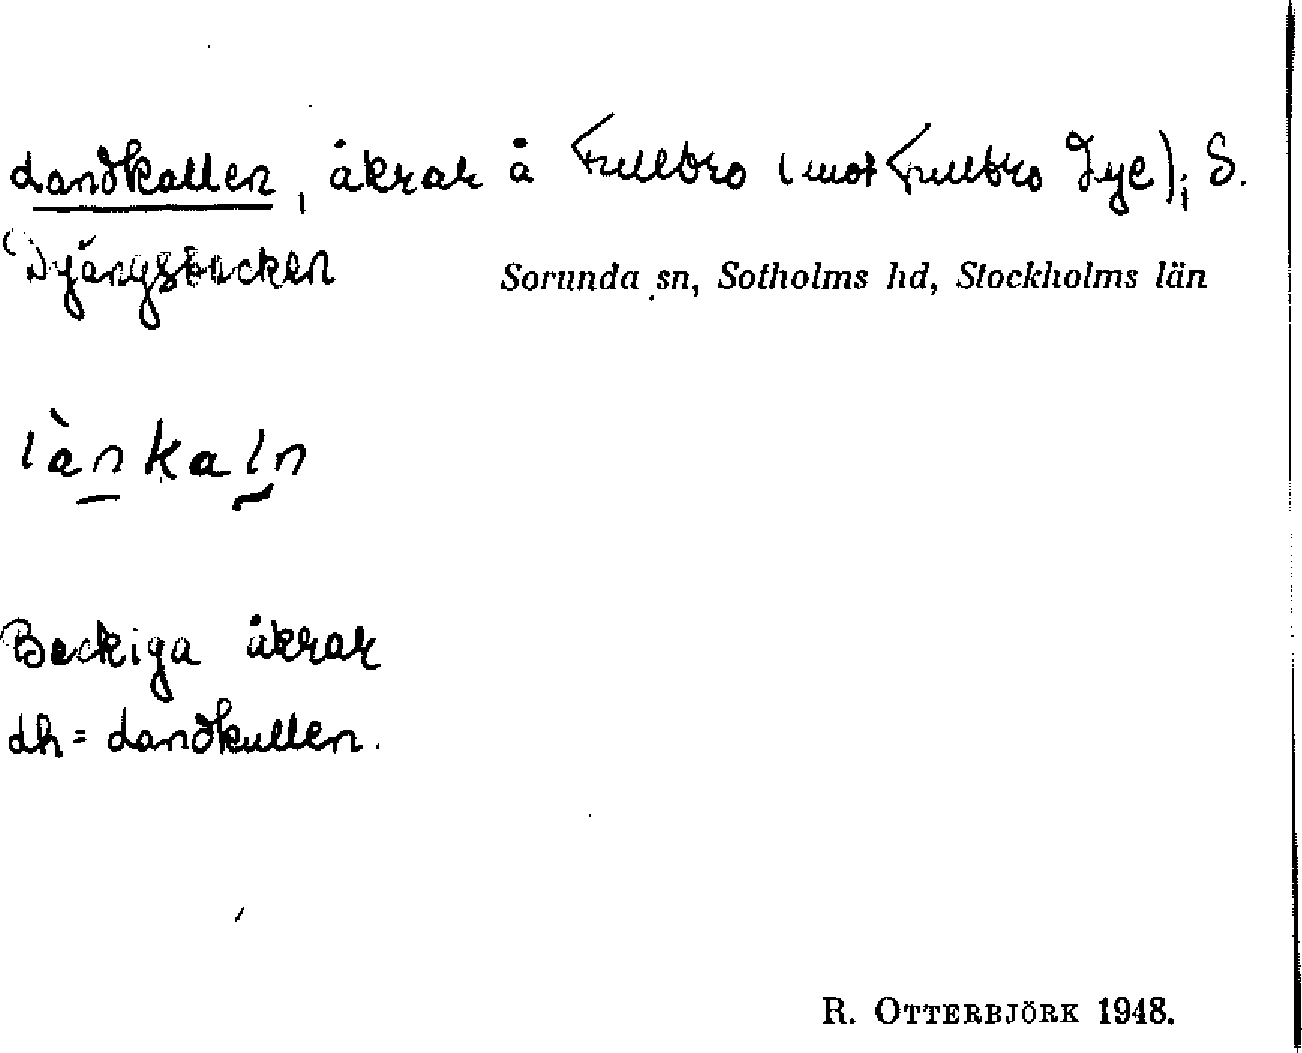 Landkallen, åkrar å Fullbro (mot Fullbro ); S.
Dyängsbacken
Sorunda sn, Sotholms hd, Stockholms län
lànkaln
Backiga åkrar
dh = Landkullen.
R. OTTERBJÖRK 1948.